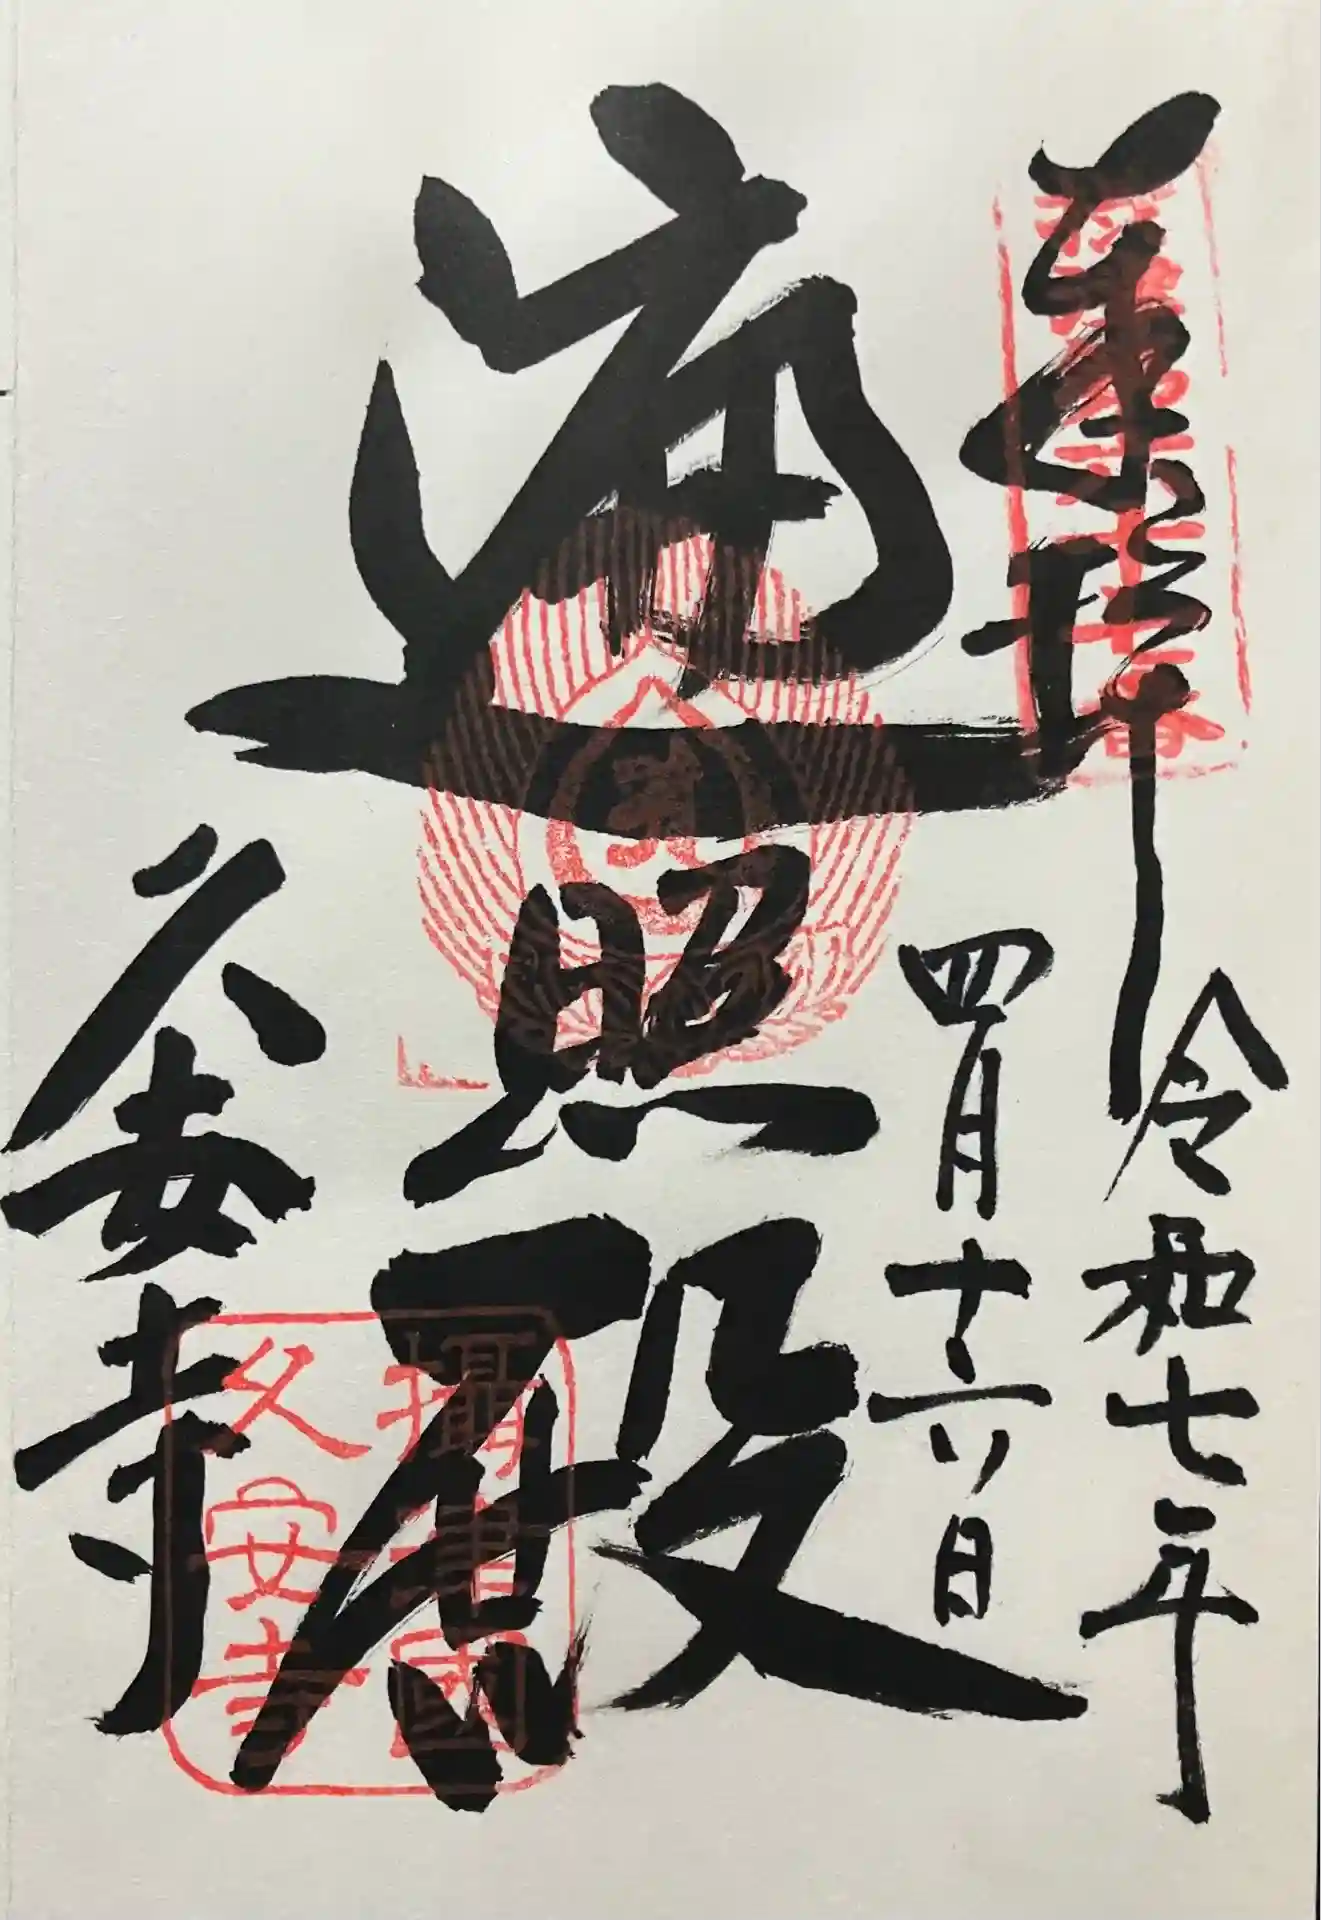 奉拝
令和七年
四月十六日
遍照殿
久安寺
攝津國
久安寺